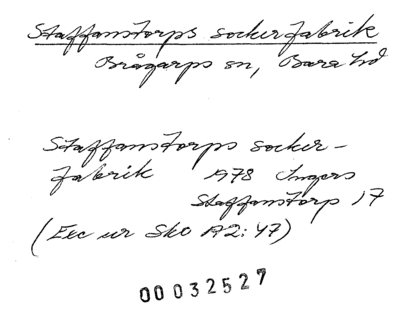 Staffanstorps sockerfabrik
Brågarps sn, Bara hd
Staffanstorps socker-
fabrik 1978 Ingers
Staffanstorp 17
(Exc ur Sko A2:47)
00032527